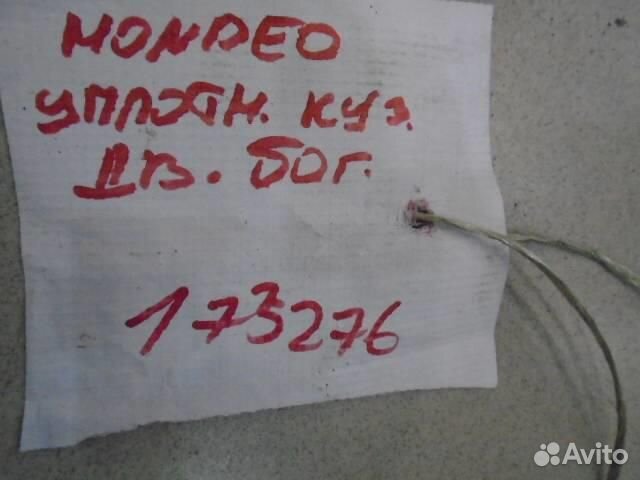 MONDEO
уплотн. куз.
Дв. бог.
173276
Avito